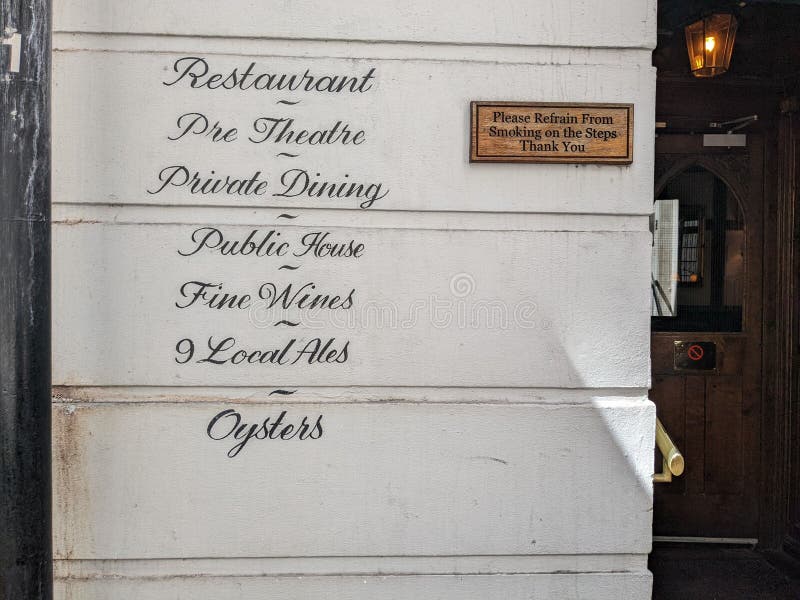 1
Restaurant
~
Pre Theatre
~
Private Dining
~
Public House
~
Fine Wines
~
9 Local Ales
~
Oysters
Please Refrain From
Smoking on the Steps
Thank You
dreamstime